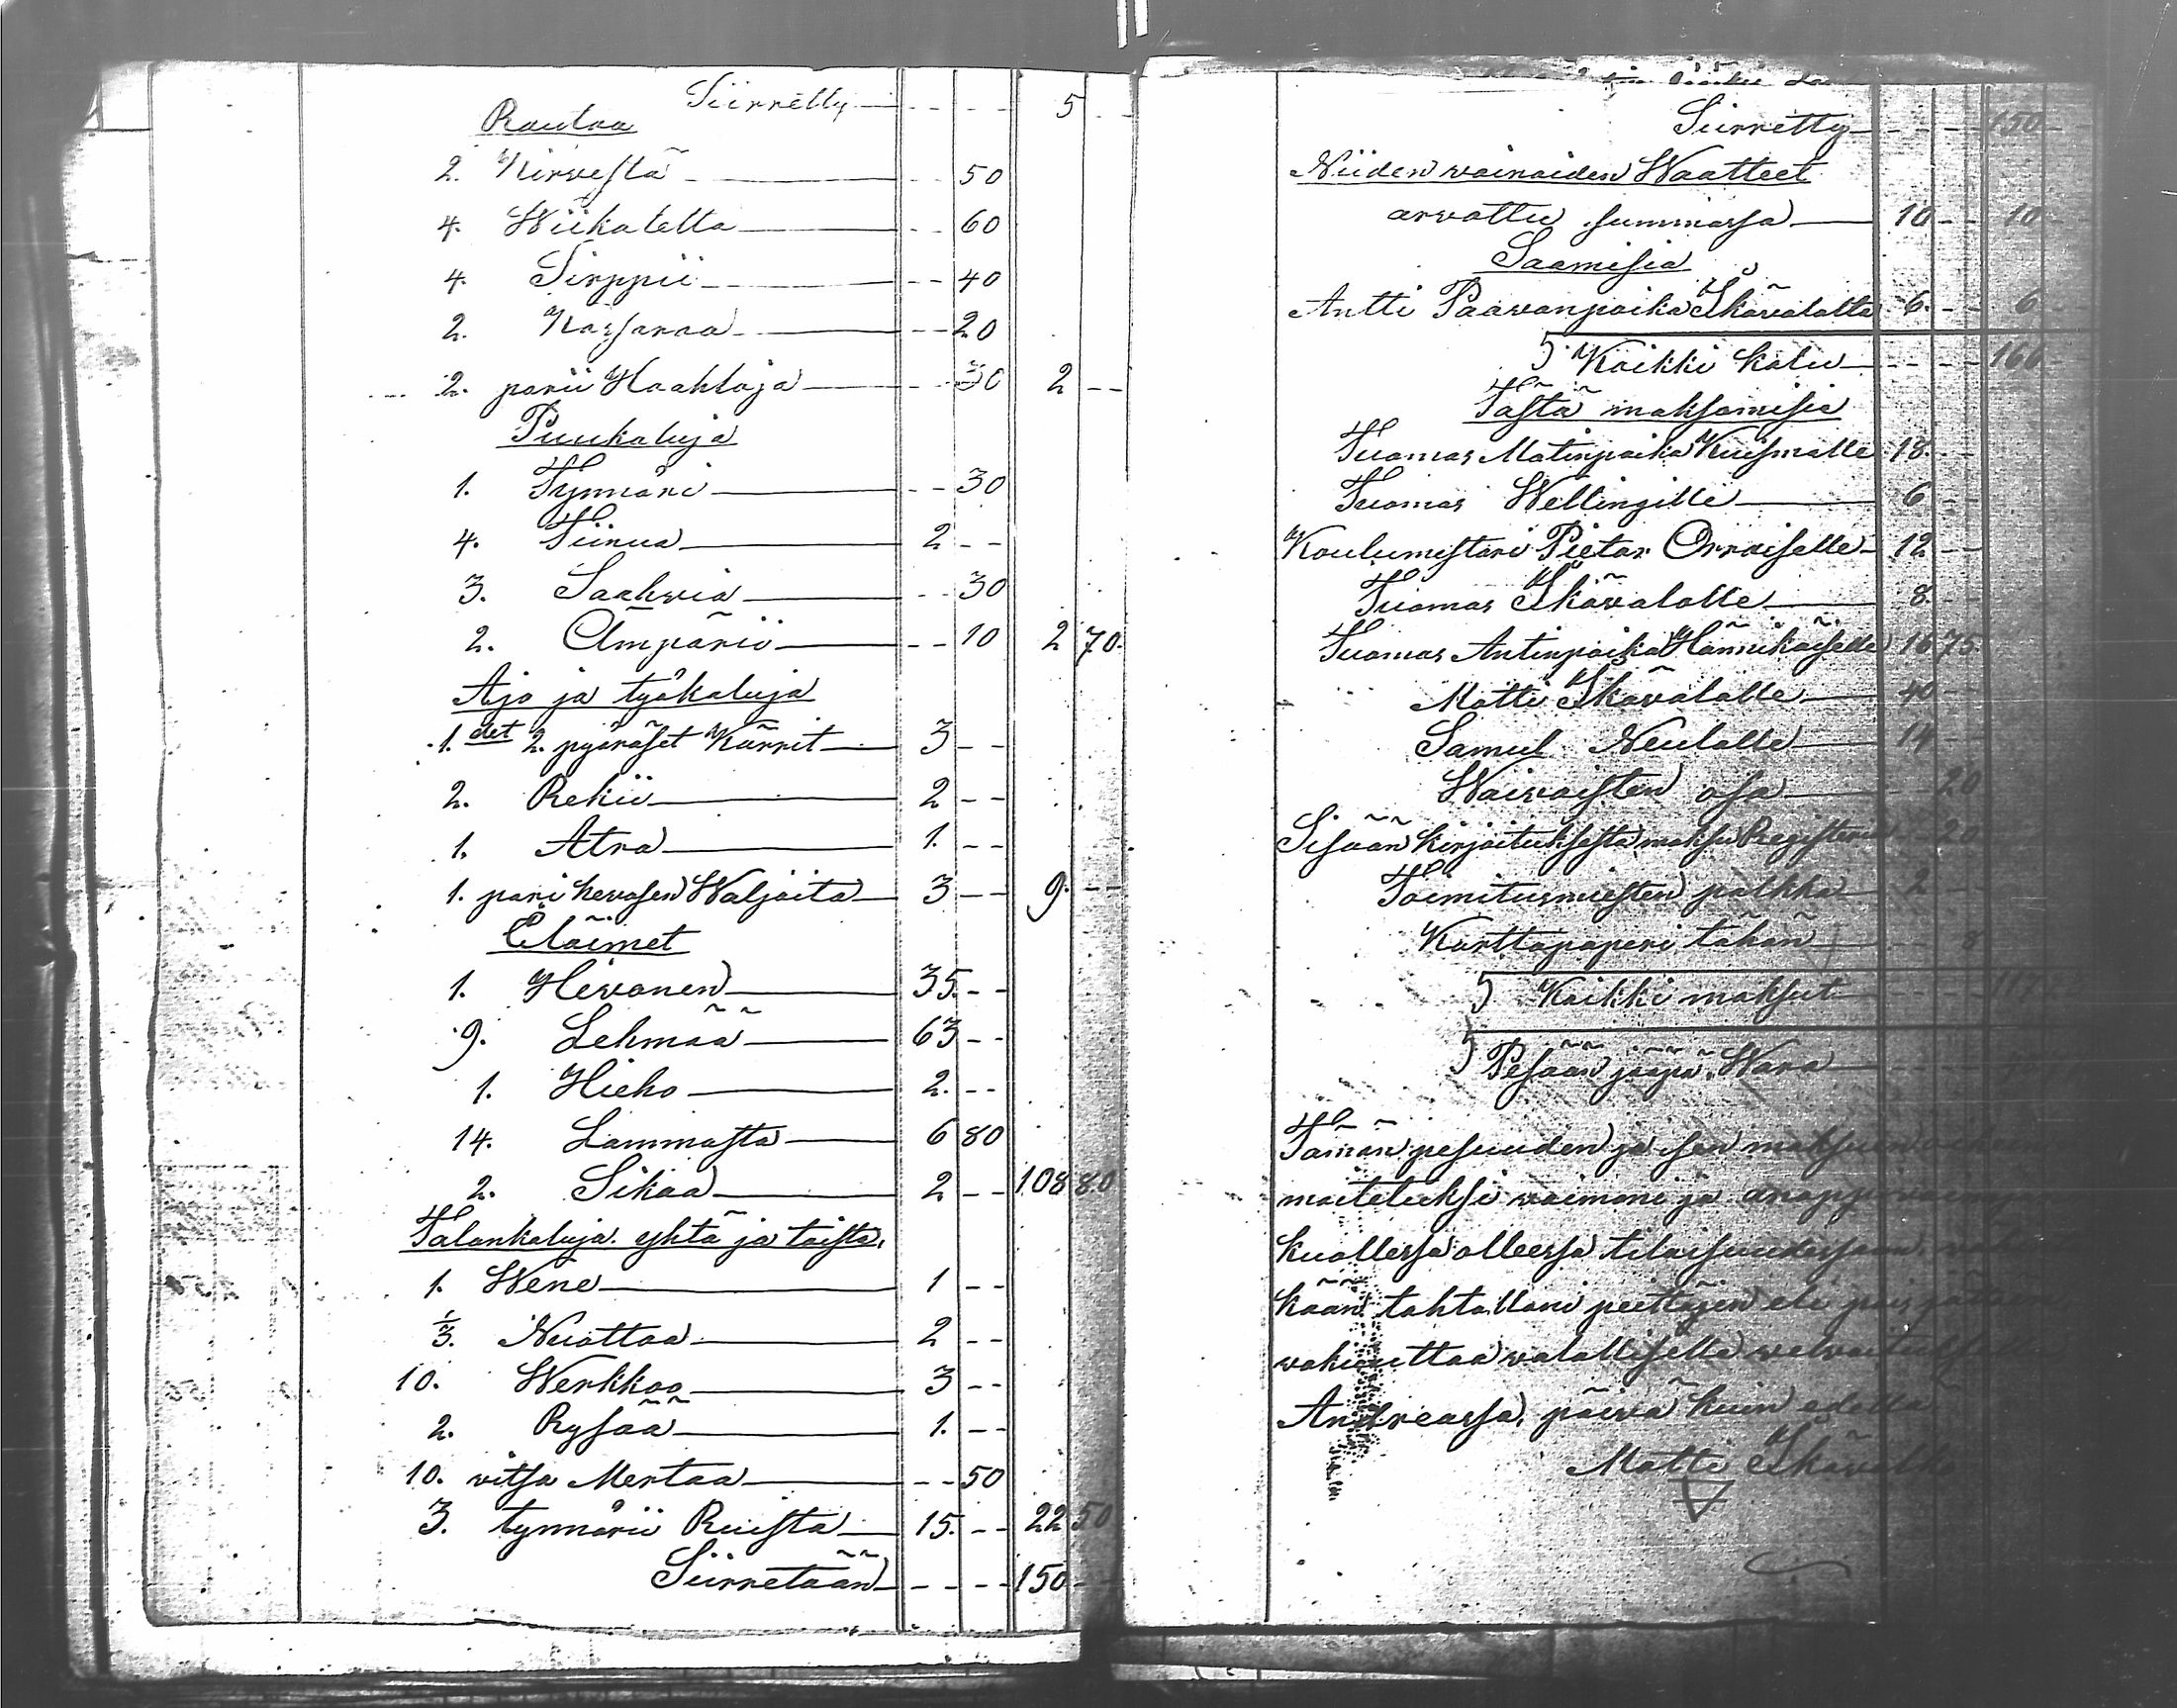 Siirretty - - - - 5 - -
Rautaa
2. Kirvestä - - 50
4. Wiikatetta - - 60
4. Sirppii - - 40
2. Kassaraa - - 20
2. parii Haahloja - - 30 2 - -
Puukaluja
1. Tynnöri - - 30
4. Tiinua 2 - -
3. Saahvia - - 30
2. Ämpärii - - 10 2 70.
Ajo ja työkaluja
1. det 2. pyöräset Kärrit 3 - -
2. Rekii 2 - -
1. Atra 1. - -
1. pari hevosen Waljaita 3 - - 9. - -
Eläimet
1. Hevonen 35. - -
9. Lehmää 63 - -
1. Hieho 2. - -
14. Lammasta 6 80
2. Sikaa 2 - - 108 80
Talonkaluja yhtä ja toista.
1. Wene 1 - -
1/3. Nuottaa 2 - -
10. Werkkoo 3 - -
2. Rysää 1. - -
10. vitsa Mertaa - - 50
3. tynnörii Ruista 15. - - 22 50
Siirretään - - - - 150 - -
Siirretty - - - - 150 - -
Niiden vainaiden Waatteet
arvattu summassa 10 - - 10
Saamisia
Antti Paavonpoika Ikävalolta 6. - - 6
Kaikki kalu - - - - 166
Tästä maksamisia
Tuomas Matinpoika Kuismalle 18. - -
Tuomas Wellingille 6 - -
Koulumestari Pietar Orraiselle 12 - -
Tuomas Ikävalolle 8. - -
Tuomas Antinpoika Hännikäiselle 16 75
Matti Ikävalolle 40 - -
Samul Neulalle 14 - -
Waivaisten osa - - 20
Sisään kirjoituksesta maksu Registeriin - - 20
Toimitusmiesten palkka 2 - -
Karttapaperi tähän - - 8
Kaikki maksut - - - -
Pesään jääpä Wara - -
Tämän pesuuden ja sen
maitetuksi vaimoni ja anoppi
kuollessa olleessa tilaisuudessaan,
kään tahtollani peittäjen eli pois
vakuuttaa valallisella
Andreassa, päivä kuin edellä
Matti Ikävalko